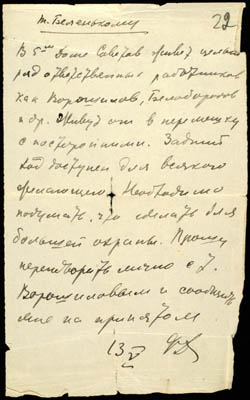 22
т. Беленькому
В 5ом доме Советов живет целый
ряд ответственных работников
как Ворошилов, Белобородов
и др. Живут они в перемешку
с посторонними. Задний
ход доступен для всякого
желающего. Необходимо
подумать, что сделать для
большей охраны. Прошу
переговорить лично с т.
Ворошиловым и сообщить
мне на принятом
13/V ФД